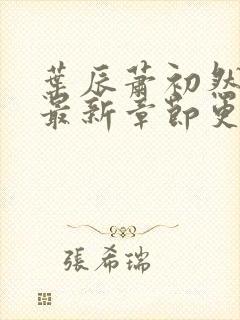 葉辰蕭初然
最新章節更
張希瑞